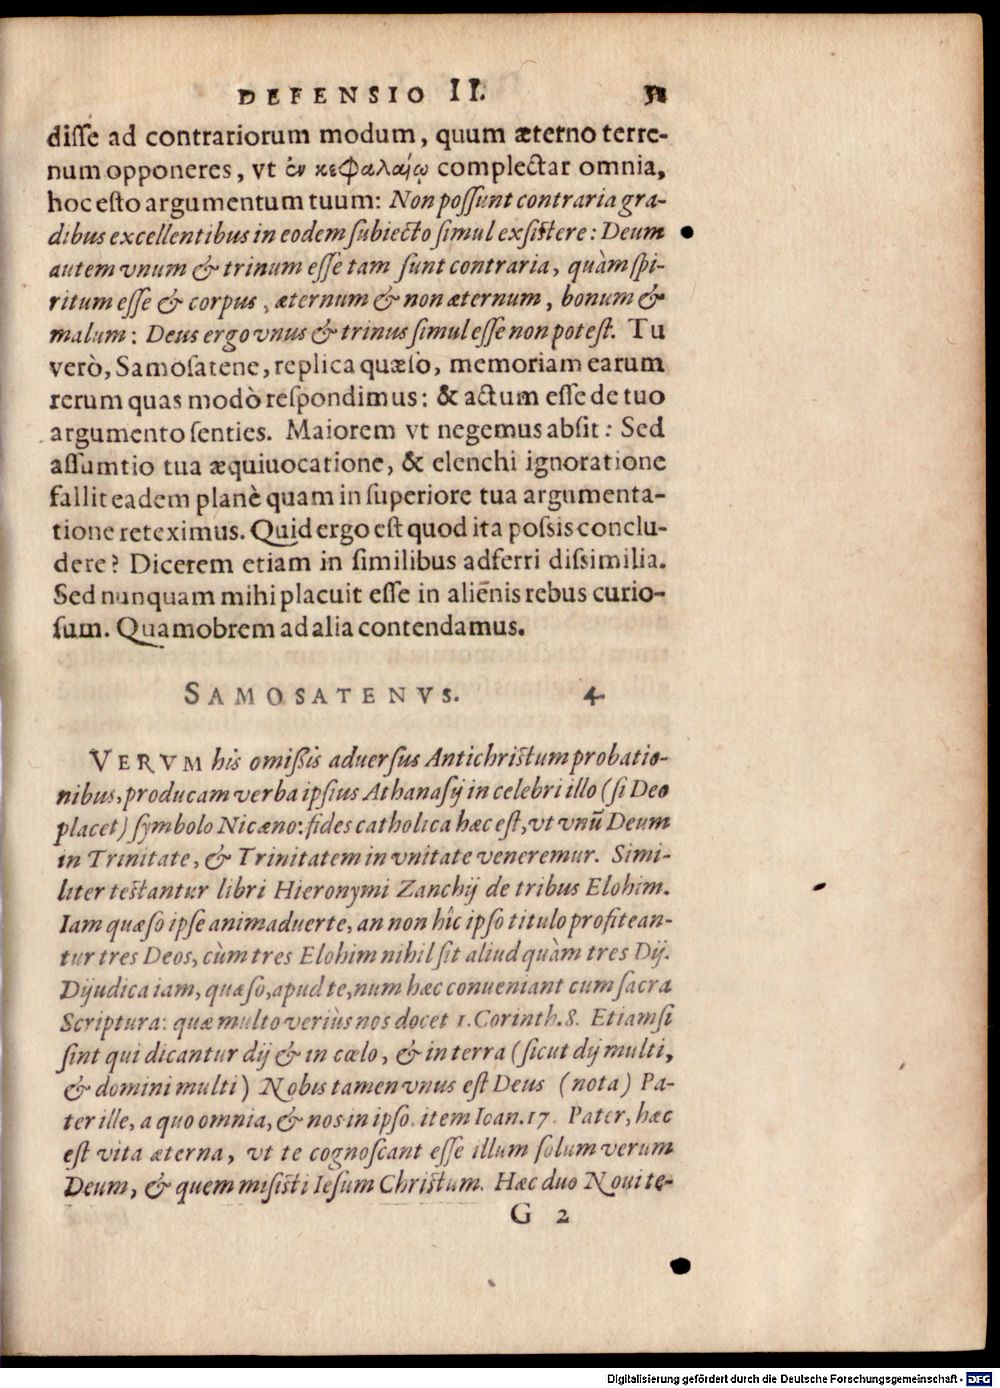 DEFENSIO II.
disse ad contrariorum modum, quum æterno terre-
num opponeres, vt ἐν κεφαλαίῳ complectar omnia,
hoc esto argumentum tuum: Non possunt contraria gra-
dibus excellentibus in eodem subiecto simul exsistere: Deum
autem vnum & trinum esse tam sunt contraria, quàm spi-
ritum esse & corpus, æternum & non æternum, bonum &
malum: Deus ergo vnus & trinus simul esse non potest. Tu
verò, Samosatene, replica quæso, memoriam earum
rerum quas modò respondimus: & actum esse de tuo
argumento senties. Maiorem vt negemus absit: Sed
assumtio tua æquiuocatione, & elenchi ignoratione
fallit eadem planè quam in superiore tua argumenta-
tione reteximus. Quid ergo est quod ita possis conclu-
dere? Dicerem etiam in similibus adferri dissimilia.
Sed nunquam mihi placuit esse in alienis rebus curio-
sum. Quamobrem ad alia contendamus.
SAMOSATENVS. 4
VERVM his omissis aduersus Antichristum probatio-
nibus, producam verba ipsius Athanasij in celebri illo (si Deo
placet) symbolo Nicæno: fides catholica hæc est, vt vnū Deum
in Trinitate, & Trinitatem in vnitate veneremur. Simi-
liter testantur libri Hieronymi Zanchij de tribus Elohim.
Iam quæso ipse animaduerte, an non hîc ipso titulo profitean-
tur tres Deos, cùm tres Elohim nihil sit aliud quàm tres Dij.
Dijudica iam, quæso, apud te, num hæc conueniant cum sacra
Scriptura: quæ multo veriùs nos docet 1. Corinth. 8. Etiamsi
sint qui dicantur dij & in cœlo, & in terra (sicut dij multi,
& domini multi) Nobis tamen vnus est Deus (nota) Pa-
ter ille, a quo omnia, & nos in ipso. item Ioan. 17. Pater, hæc
est vita æterna, vt te cognoscant esse illum solum verum
Deum, & quem misisti Iesum Christum. Hæc duo Noui te-
G 2
Digitalisierung gefördert durch die Deutsche Forschungsgemeinschaft - DFG